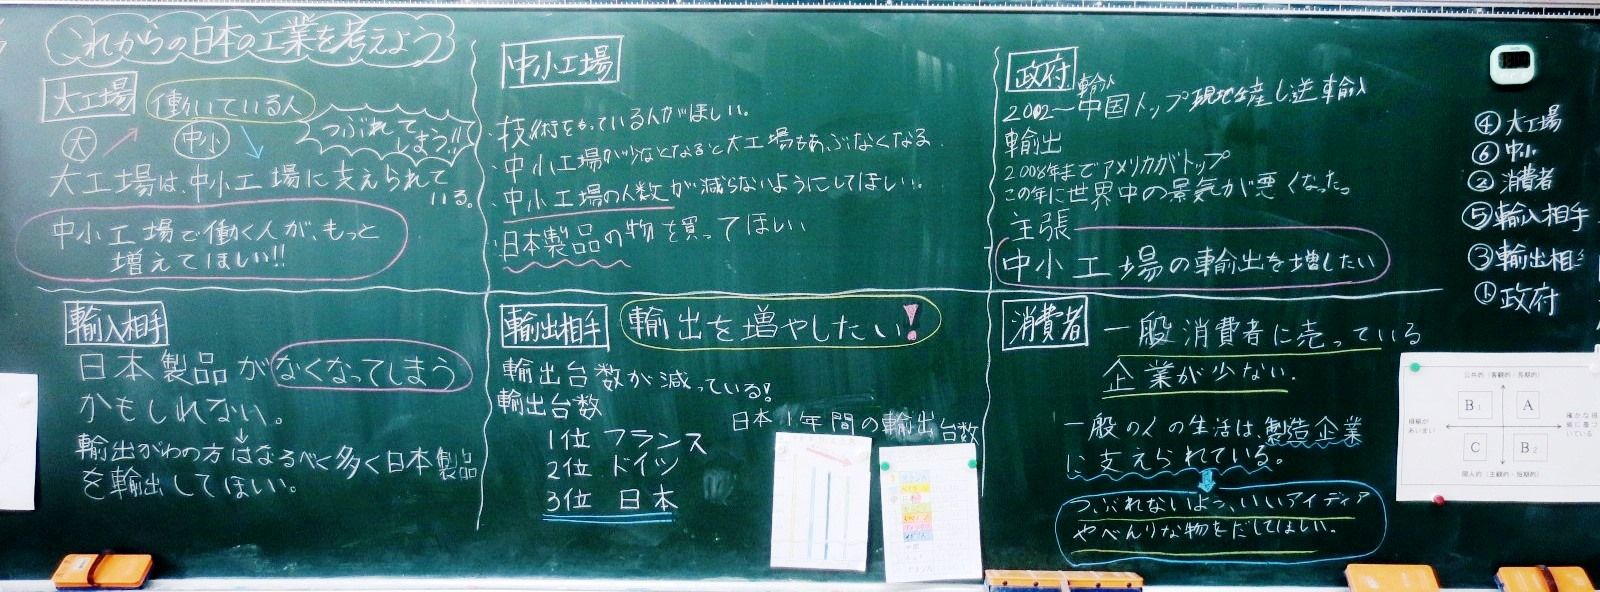 これからの日本の工業を考えよう
大工場 働いている人
大 中小 つぶれて
しまう!!
大工場は、中小工場に支えられて
いる。
中小工場で働く人が、もっと
増えてほしい!!
中小工場
・技術をもっている人がほしい。
・中小工場が少なくなると大工場もあぶなくなる。
・中小工場の人数が減らないようにしてほしい。
・日本製品の物を買ってほしい
政府
輸入
2002～中国トップ 現地生産し逆輸入
輸出
2008年までアメリカがトップ
この年に世界中の景気が悪くなった。
主張
中小工場の輸出を増したい
④大工場
⑥中小
②消費者
⑤輸入相手
③輸出相手
①政府
輸入相手
日本製品がなくなってしまう
かもしれない。
輸出がわの方はなるべく多く日本製品
を輸出してほしい。
輸出相手 輸出を増やしたい!
輸出台数が減っている!
輸出台数
1位 フランス
2位 ドイツ
3位 日本
日本1年間の輸出台数
消費者
一般消費者に売っている
企業が少ない.
一般の人の生活は、製造企業
に支えられている。
つぶれないよう、いいアイディア
やべんりな物をだしてほしい。
公共的(客観的・長期的)
B1 A
C B2
個人的(主観的・短期的)
根拠が
あいまい